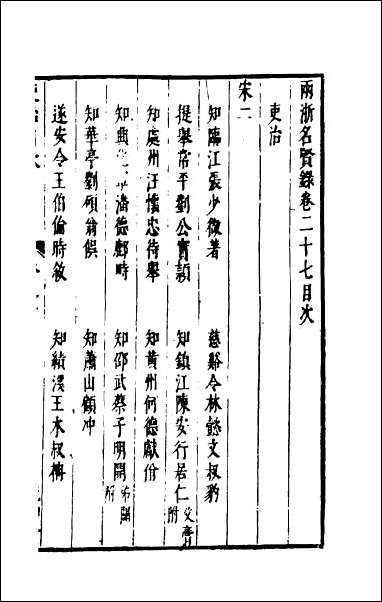 兩浙名賢錄卷二十七目次
吏治
宋二
知臨江張少微著 慈谿令林懿文叔豹
提舉常平劉公實穎 知鎮江陳安行居仁 父膏附
知處州汪懷忠待舉 知黃州何德獻偁
知興 軍潘德鄜時 知邵武蔡子明開 弟闢附
知華亭劉碩翁俁 知蕭山顧冲
遂安令王伯倫時敘 知績溪王木叔柟